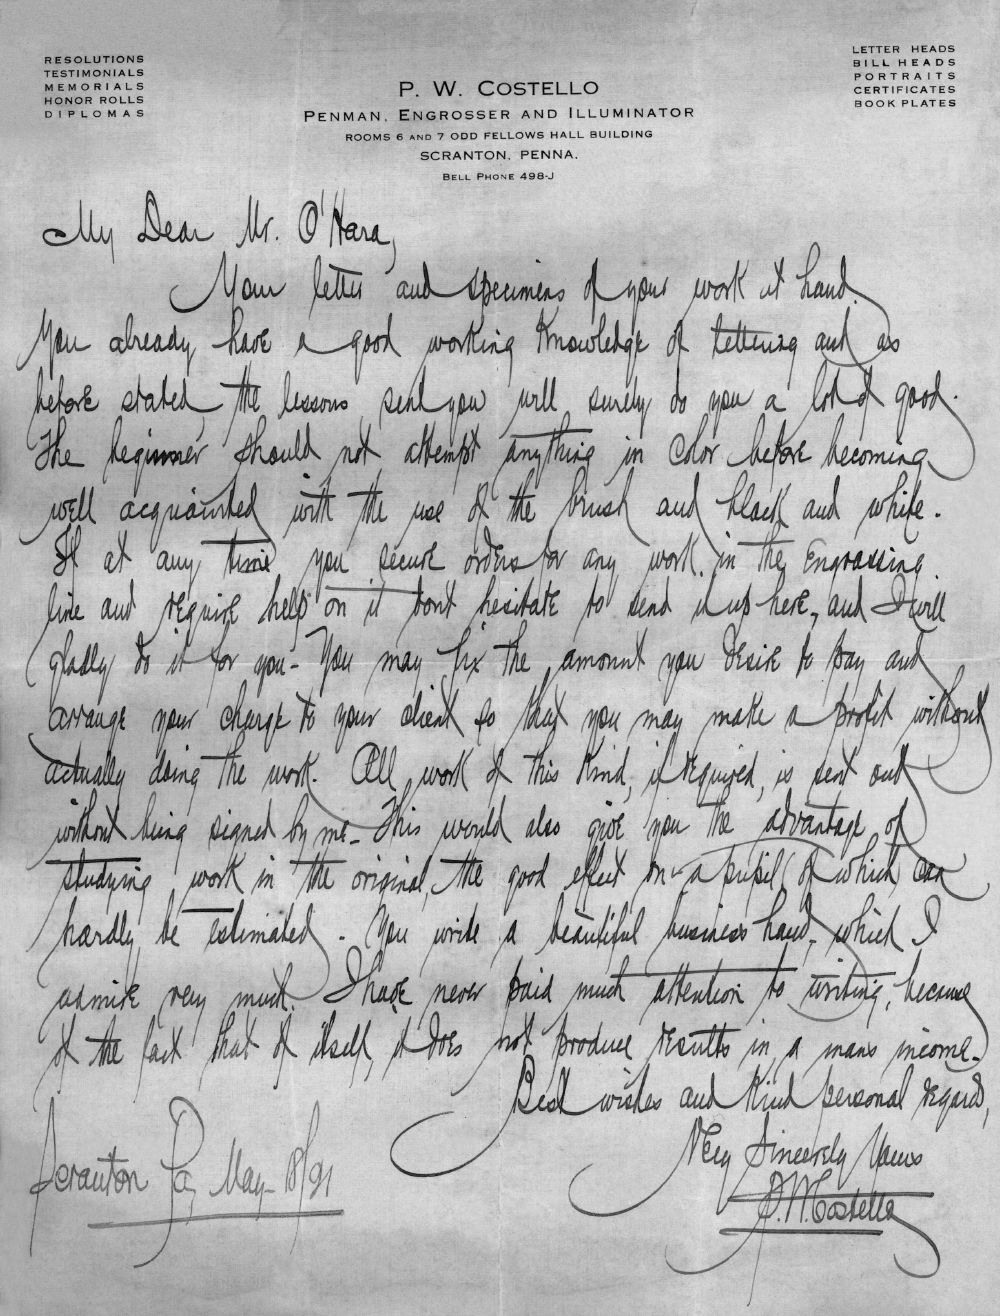 RESOLUTIONS
TESTIMONIALS
MEMORIALS
HONOR ROLLS
DIPLOMAS
P. W. COSTELLO
PENMAN, ENGROSSER AND ILLUMINATOR
ROOMS 6 AND 7 ODD FELLOWS HALL BUILDING
SCRANTON, PENNA.
BELL PHONE 498-J
LETTER HEADS
BILL HEADS
PORTRAITS
CERTIFICATES
BOOK PLATES
My Dear Mr. O'Hara,
Your letter and specimens of your work at hand.
You already have a good working knowledge of lettering and as
before stated, the lessons sent you will surely do you a lot of good.
The beginner should not attempt anything in color before becoming
well acquainted with the use of the brush and black and white.
If at any time you secure orders for any work in the Engrossing
line and require help on it don't hesitate to send it up here, and I will
gladly do it for you - You may fix the amount you desire to pay and
arrange your charge to your client so that you may make a profit without
actually doing the work. All work of this kind, if required, is sent out
without being signed by me - This would also give you the advantage of
studying work in the original, the good effect on a pupil of which can
hardly be estimated. You write a beautiful business hand, which I
admire very much. I have never paid much attention to writing, because
of the fact that of itself, it does not produce results in a mans income.
Best wishes and kind personal regards,
Very Sincerely Yours
P. W. Costello
Scranton Pa, May - 18/21